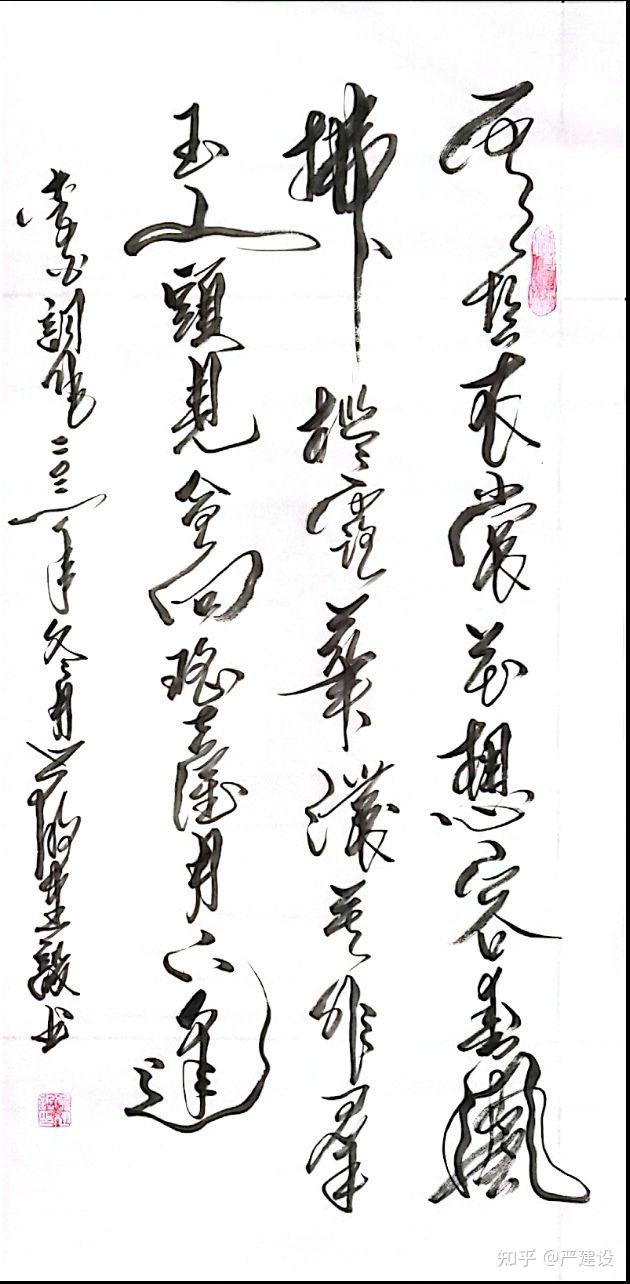 雲想衣裳花想容春風
拂檻露華濃若非羣
玉山頭見會向瑤臺月下逢
李白年冬月建設书
知乎 @严建设